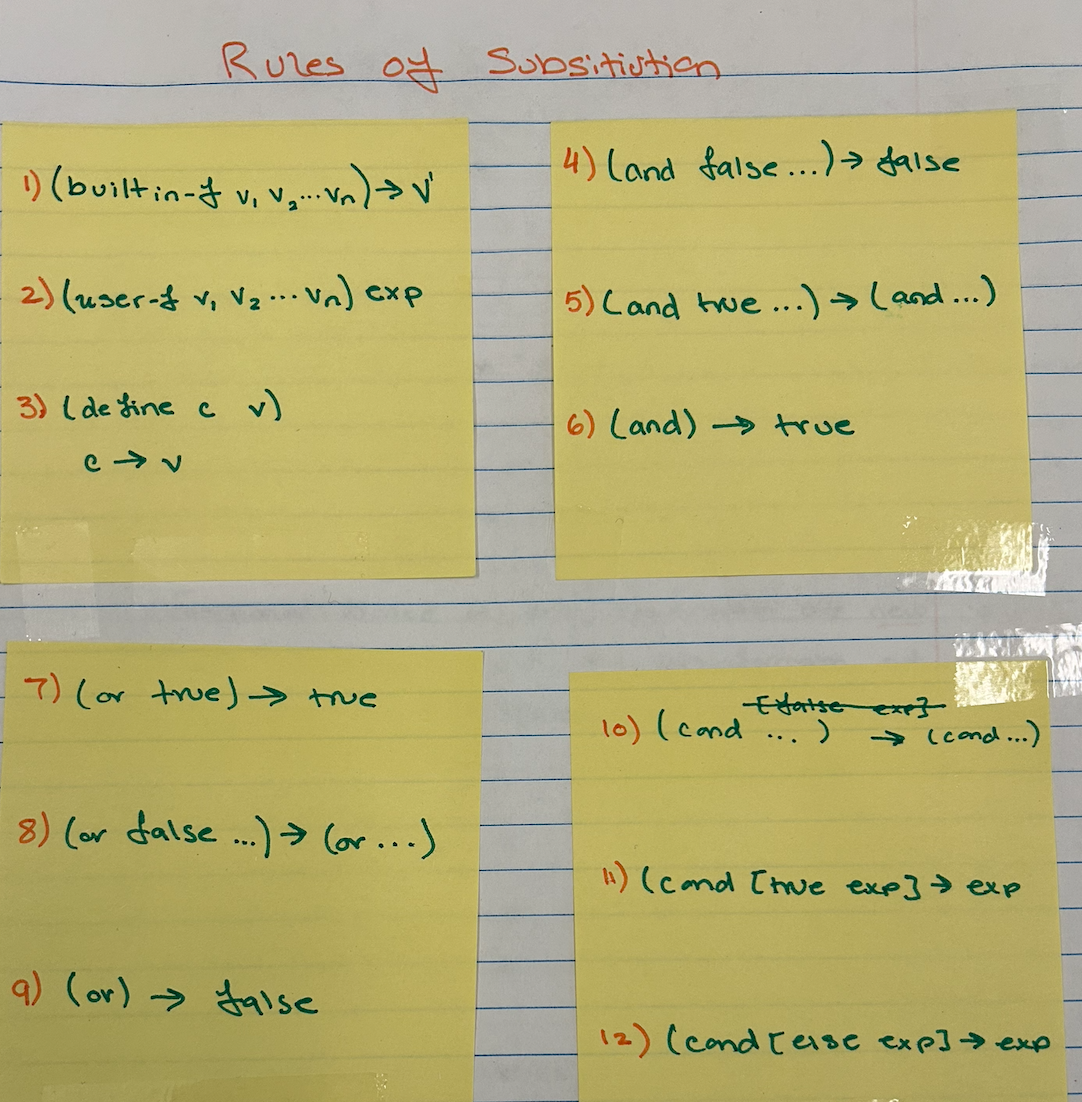 Rules of Subsitiution
1) (builtin-f v₁ v₂...vₙ) → v'
2) (user-f v₁ v₂...vₙ) exp
3) (define c v)
c → v
4) (and false...) → false
5) (and true ...) → (and...)
6) (and) → true
7) (or true) → true
8) (or false ...) → (or ...)
9) (or) → false
[false exp]
10) (cond ... ) → (cond...)
11) (cond [true exp] → exp
12) (cond [else exp] → exp